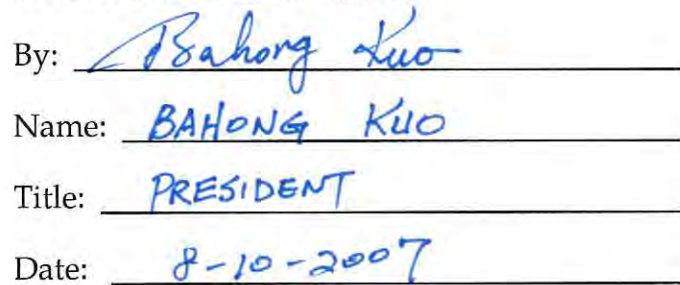 By: Bahong Kuo
Name: BAHONG KUO
Title: PRESIDENT
Date: 8-10-2007